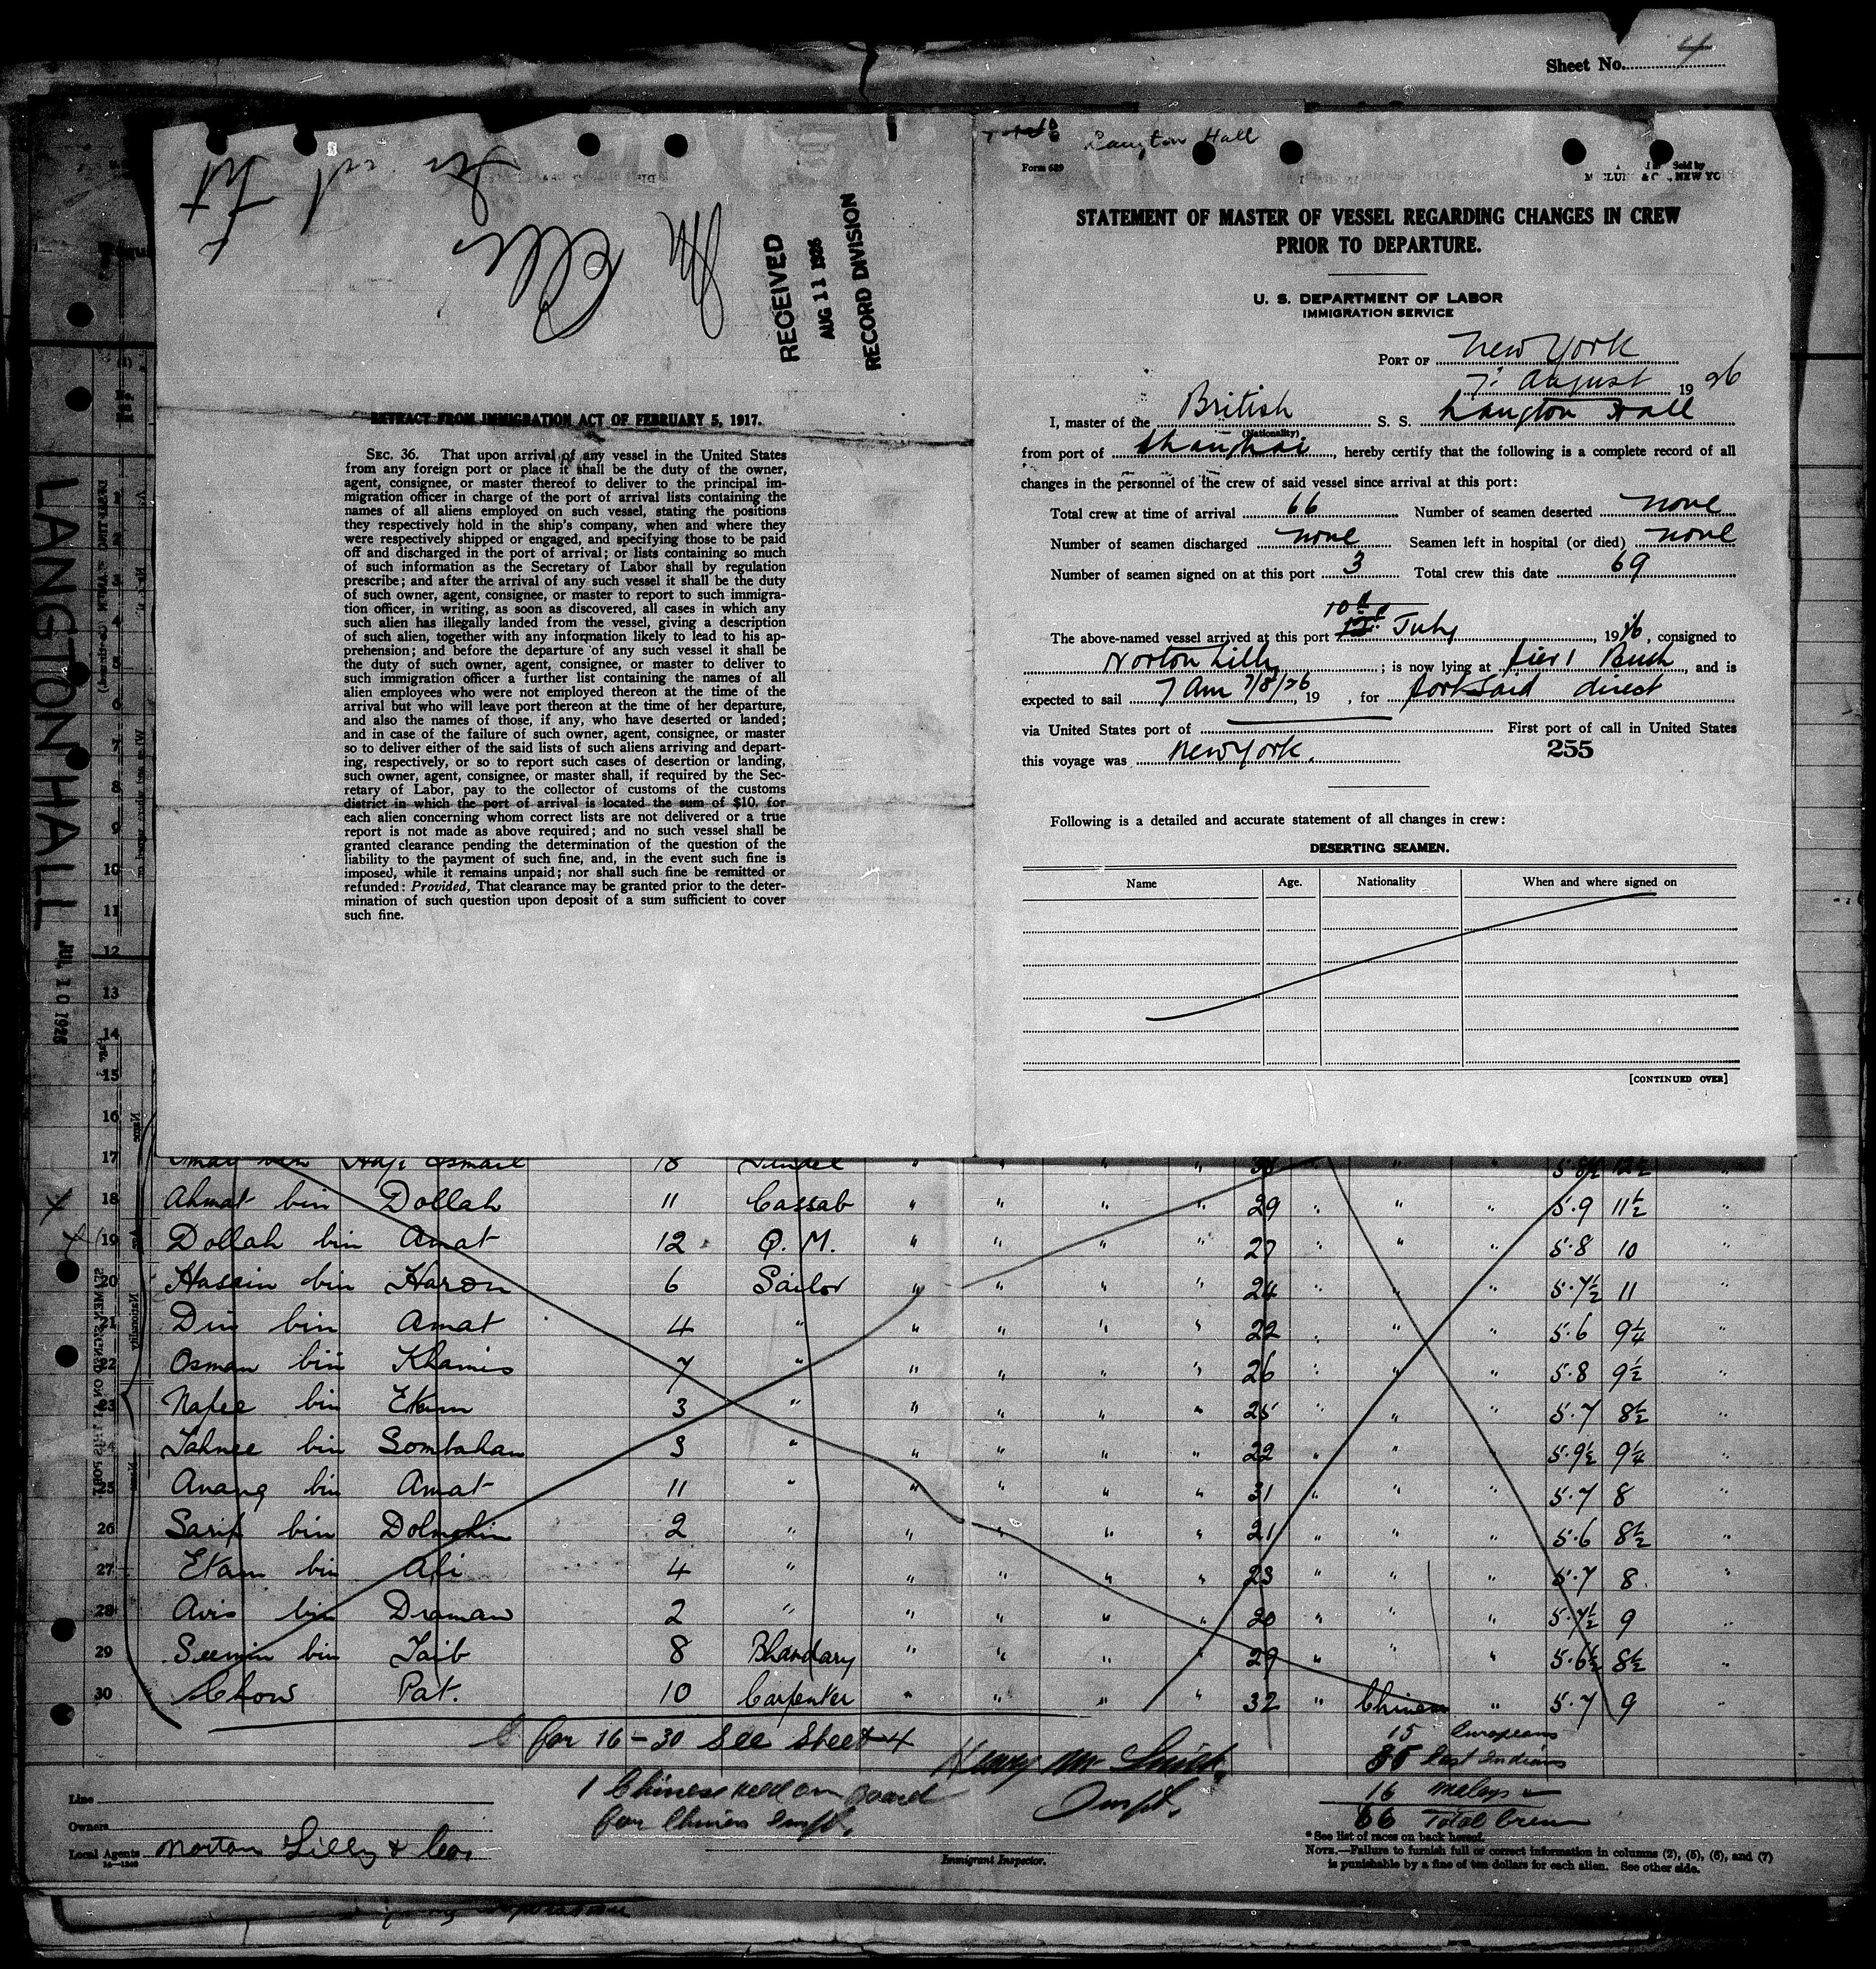 Sheet No. 4
Langton Hall
Form 689
Sold by
NEW YO
STATEMENT OF MASTER OF VESSEL REGARDING CHANGES IN CREW
PRIOR TO DEPARTURE.
U. S. DEPARTMENT OF LABOR
IMMIGRATION SERVICE
PORT OF New York
7. August 1926
I, master of the British S. S. Langton Hall
(Nationality)
from port of Shanghai, hereby certify that the following is a complete record of all
changes in the personnel of the crew of said vessel since arrival at this port:
Total crew at time of arrival 66 Number of seamen deserted none
Number of seamen discharged none Seamen left in hospital (or died) none
Number of seamen signed on at this port 3 Total crew this date 69
10th
The above-named vessel arrived at this port July, 1926, consigned to
Norton Lilly; is now lying at pier 1 Bush, and is
expected to sail 7 am 7/8/26, 19 , for port Said direct
via United States port of First port of call in United States
this voyage was New York. 255
Following is a detailed and accurate statement of all changes in crew:
DESERTING SEAMEN.
Name Age. Nationality When and where signed on
[CONTINUED OVER]
Ellis
RECEIVED
AUG 11 1926
RECORD DIVISION
EXTRACT FROM IMMIGRATION ACT OF FEBRUARY 5, 1917.
SEC. 36. That upon arrival of any vessel in the United States
from any foreign port or place it shall be the duty of the owner,
agent, consignee, or master thereof to deliver to the principal im-
migration officer in charge of the port of arrival lists containing the
names of all aliens employed on such vessel, stating the positions
they respectively hold in the ship's company, when and where they
were respectively shipped or engaged, and specifying those to be paid
off and discharged in the port of arrival; or lists containing so much
of such information as the Secretary of Labor shall by regulation
prescribe; and after the arrival of any such vessel it shall be the duty
of such owner, agent, consignee, or master to report to such immigra-
tion officer, in writing, as soon as discovered, all cases in which any
such alien has illegally landed from the vessel, giving a description
of such alien, together with any information likely to lead to his ap-
prehension; and before the departure of any such vessel it shall be
the duty of such owner, agent, consignee, or master to deliver to
such immigration officer a further list containing the names of all
alien employees who were not employed thereon at the time of the
arrival but who will leave port thereon at the time of her departure,
and also the names of those, if any, who have deserted or landed;
and in case of the failure of such owner, agent, consignee, or master
so to deliver either of the said lists of such aliens arriving and depart-
ing, respectively, or so to report such cases of desertion or landing,
such owner, agent, consignee, or master shall, if required by the Sec-
retary of Labor, pay to the collector of customs of the customs
district in which the port of arrival is located the sum of $10, for
each alien concerning whom correct lists are not delivered or a true
report is not made as above required; and no such vessel shall be
granted clearance pending the determination of the question of the
liability to the payment of such fine, and, in the event such fine is
imposed, while it remains unpaid; nor shall such fine be remitted or
refunded: Provided, That clearance may be granted prior to the deter-
mination of such question upon deposit of a sum sufficient to cover
such fine.
LANGTON HALL JUL 10 1926
8
9
10
11
12
13
14
15
16
17 bin Haji Ismail 18 Tindel " " " " " " " 5.8½ 12½ "
18 Ahmat bin Dollah 11 Cassab " " " " 29 " " " 5.9 11½ "
19 Dollah bin Amat 12 Q. M. " " " " 27 " " " 5.8 10 "
20 Hassin bin Haron 6 Sailor " " " " 24 " " " 5.7½ 11 "
21 Din bin Amat 4 " " " " " 22 " " " 5.6 9¼ "
22 Osman bin Khamis 7 " " " " " 26 " " " 5.8 9½ "
23 Nafee bin Ekum 3 " " " " " 25 " " " 5.7 8½ "
24 Tahnee bin Sombahan 3 " " " " " 22 " " " 5.9½ 9¼ "
25 Anang bin Amat 11 " " " " " 31 " " " 5.7 8 "
26 Sarip bin 2 " " " " " 21 " " " 5.6 8½ "
27 Ekam bin Ali 4 " " " " " 23 " " " 5.7 8 "
28 Avis bin Draman 2 " " " " " 20 " " " 5.7½ 9 "
29 Seemin bin Taib 8 Bhandary " " " " 29 " " " 5.6½ 8½ "
30 Chow Pat. 10 Carpenter " " " " 32 " Chinese " 5.7 9 "
for 16 - 30 See Sheet 4
1 Chinese held on guard
for Chinese Insp.
Henry M. Smith.
Insp.
15 Europeans
35 East Indians
16 Malays
66 Total Crew
Line
Owners
Local Agents Norton Lilly & Co.
Immigrant Inspector.
* See list of races on back hereof.
NOTE.—Failure to furnish full or correct information in columns (2), (5), (6), and (7)
is punishable by a fine of ten dollars for each alien. See other side.